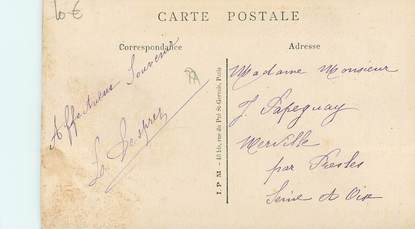 10-€
CARTE POSTALE
Correspondance
Adresse
Affectueux Souvenir
Madame Monsieur
J. Papeguay
Merville
par Presles
Seine et Oise
I P M - 40 bis, rue du Pré-St-Gervais, Paris